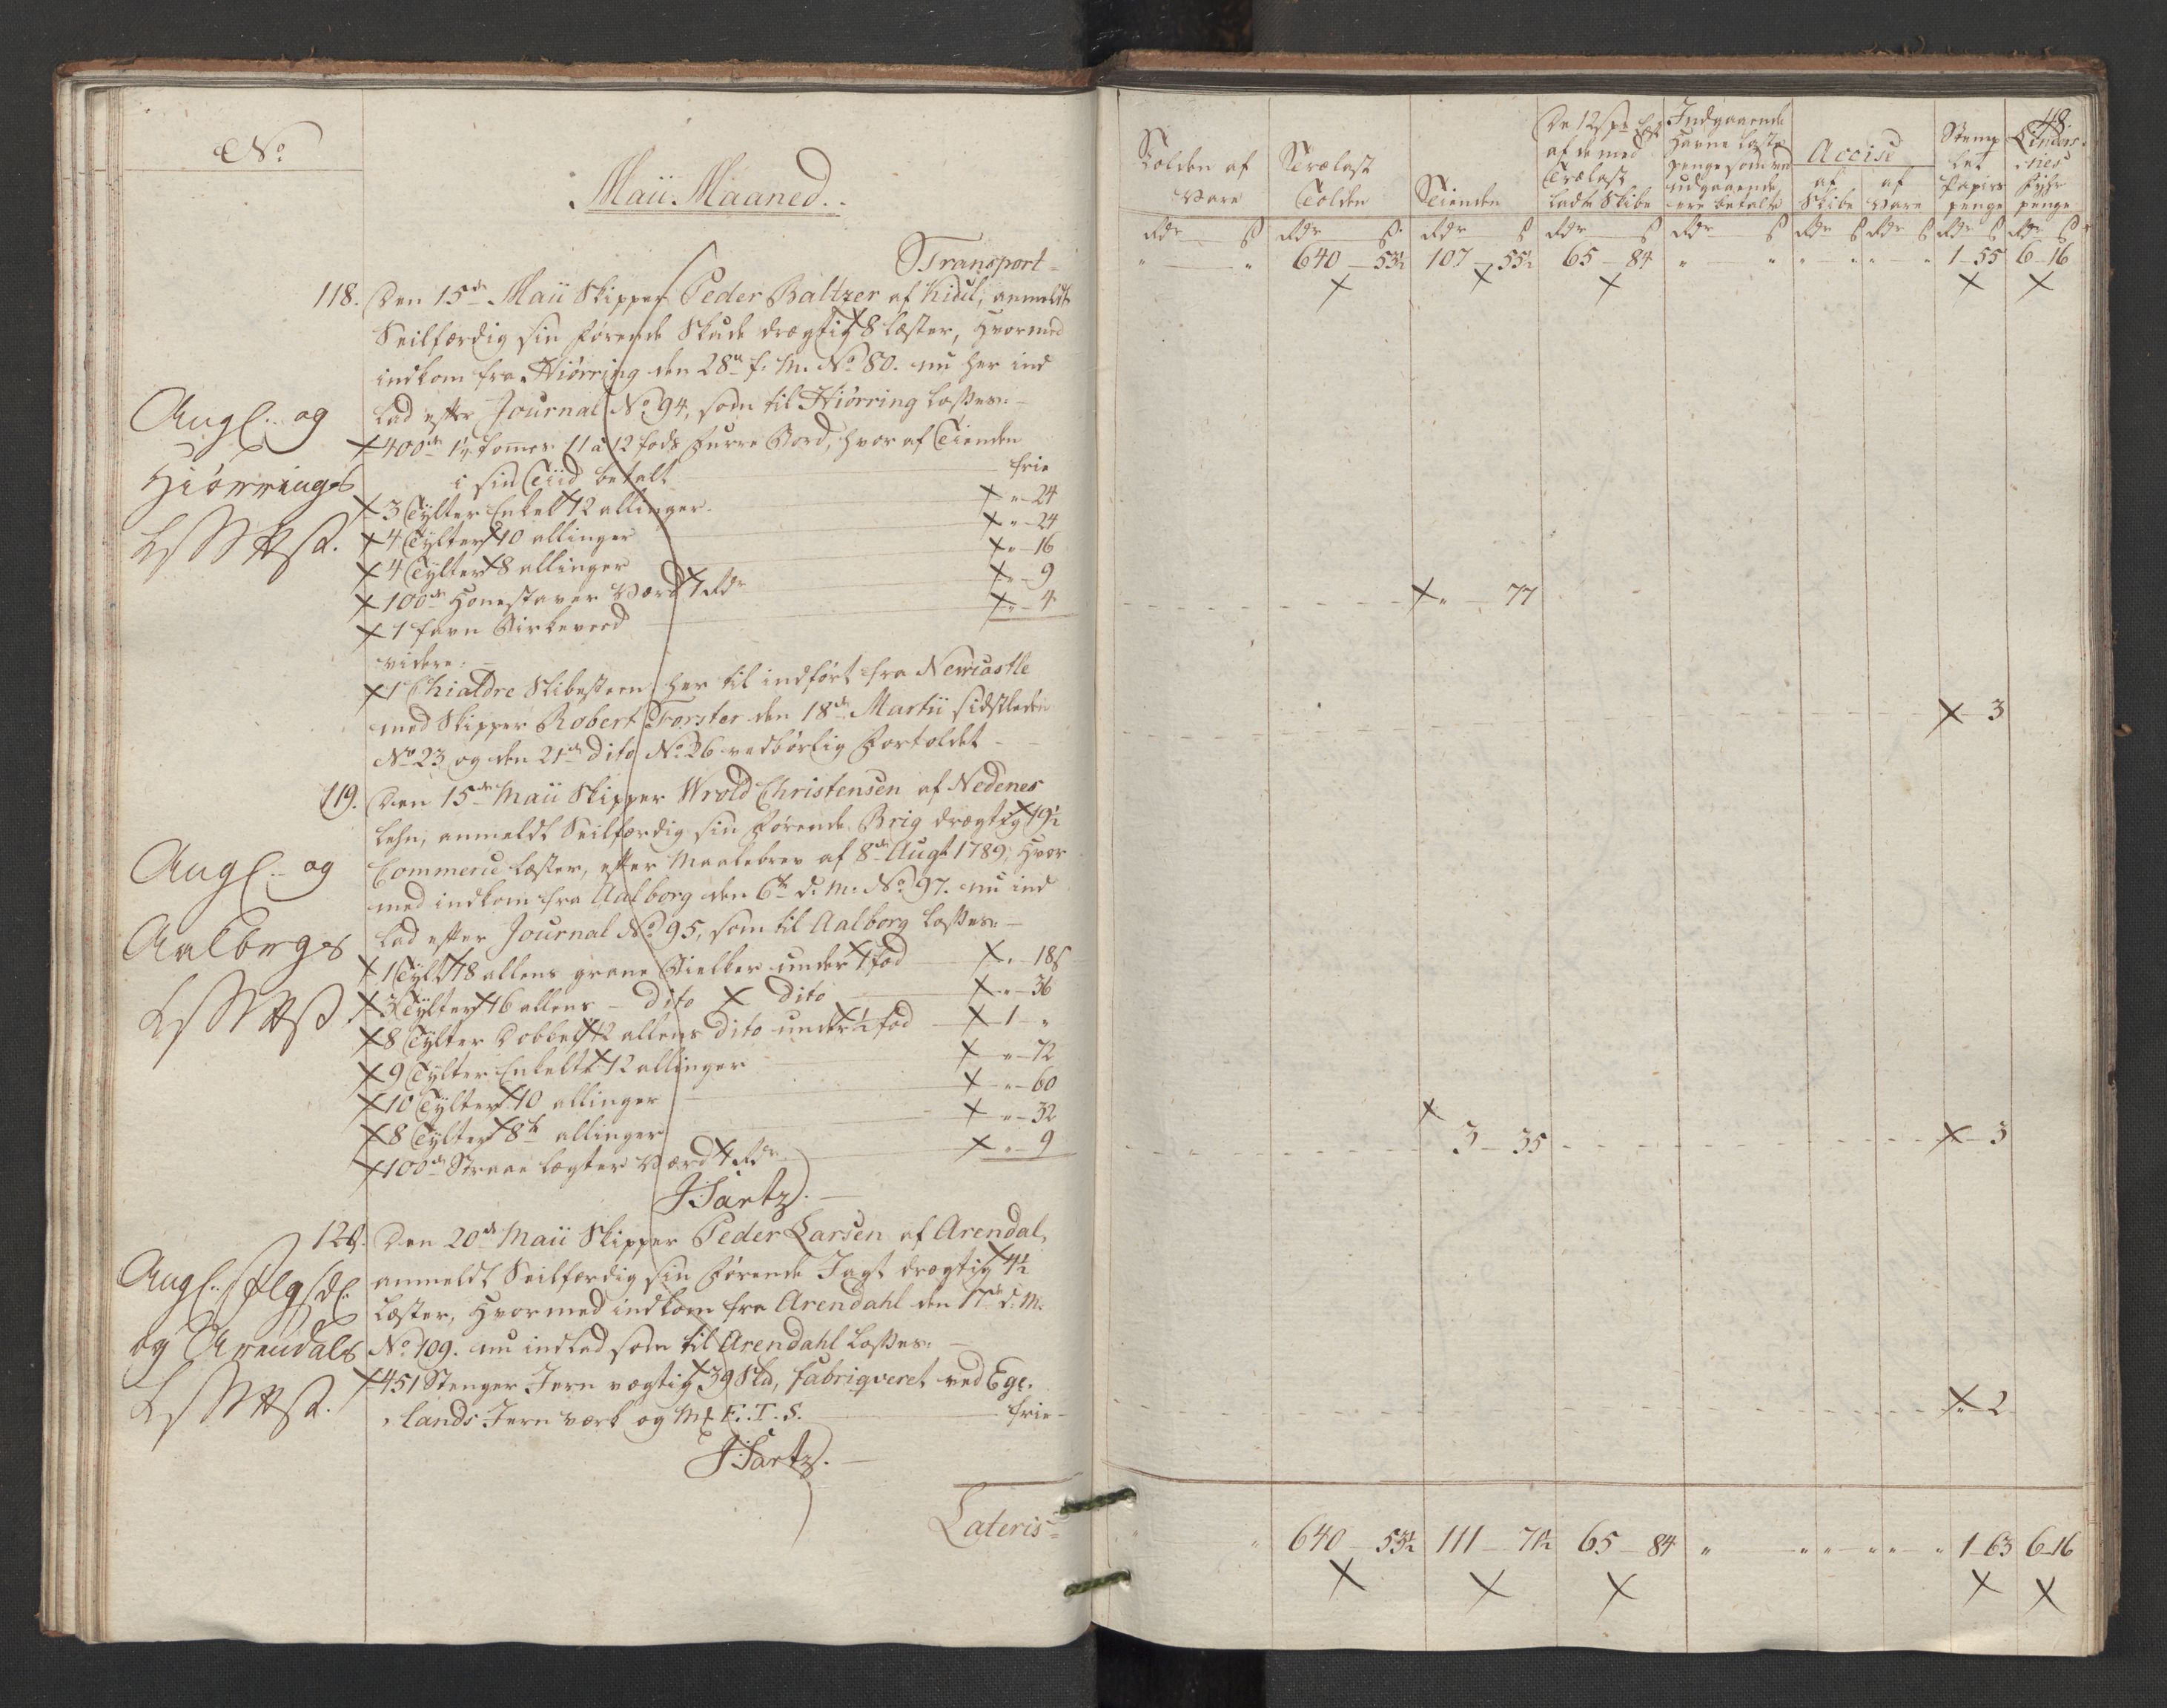 No
Maii Maaned.
Transport
118. Den 15de Maii Skipper Peder Baltzer af Kidil, anmeldt
Seilfærdig sin førende Skude drægtig 8 læster, Hvormed
indkom fra Hiørring den 28de f. M. No 80. nu her ind
lad efter Journal No 94, som til Hiørring losses.
Angl. og
Hiørrings
400de 1½ tommes 11 a 12 fods Furre Bord, hvor af Tienden
i sin Tiid betalt frie
3 Tylter Enkelt 12 allinger " 24
4 Tylter 10 allinger " 24
4 Tylter 8 allinger " 16
100de Honestaver Værd 1 Rdr " 9
1 favn Birkeveed " 4
" 77
videre:
1 Chialdre Skibesteen her til indført fra Newcastle
med Skipper Robert Forster den 18de Martii sidstleden
No 23 og den 21de dito No 26 vedbørlig Fortoldet
3
119. Den 15de Maii Skipper Wrold Christensen af Nedenes
Lehn, anmeldt Seilfærdig sin førende Brig drægtig 19½
Commerce læster, efter Maalebrev af 8de Augt 1789, Hvor
med indkom fra Aalborg den 6te d. M. No 97. nu ind
lad efter Journal No 95, som til Aalborg losses.
Angl. og
Aalborgs
1 Tylt 18 allens grane Bielker under 1 fod " 18 s
3 Tylter 16 allens dito dito " 36
8 Tylter Dobbelt 12 allens dito under ½ fod 1 "
9 Tylter Enkelt 12 allinger " 72
10 Tylter 10 allinger " 60
8 Tylter 8te allinger " 32
100de Straae lægter Værd 1 Rdr " 9
3 35
3
JSartz.
120. Den 20de Maii Skipper Peder Larsen af Arendal,
anmeldt Seilfærdig sin førende Jagt drægtig 4½
Læster, Hvormed indkom fra Arendahl den 17de d. M.
No 109. nu indlad som til Arendahl losses.
Angl.
og Arendals
451 Stenger Jern vægtig 39 Skd, fabriqveret ved Ege,
lands Jern værk og M: E. I. S. frie
" 2
JSartz.
Lateris
48.
Tolden af Vare
Trælast Tolden
Tienden
De 12 s pr Lest af de med Trælast ladte Skibe
Indgaaende Havne Laste penge som ved udgaaende ere betalte
Accise
af Skibe
af Vare
Stemplet Papirs penge
Lindesnes Fyhr penge
Rdr s Rdr s Rdr s Rdr s Rdr s Rdr s Rdr s Rdr s Rdr s
" " 640 53½ 107 55½ 65 84 " " " " " " 1 55 6 16
" 640 53½ 111 71½ 65 84 " " " " " 1 63 6 16